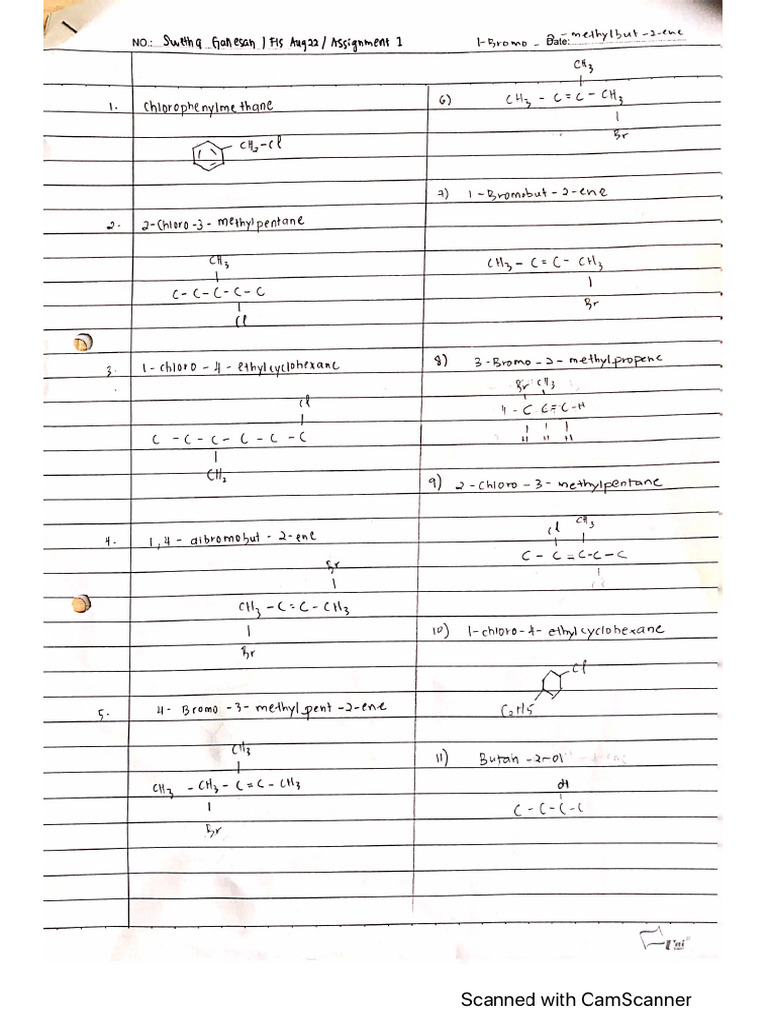 NO.: Swetha Ganesan / FIS Aug 22 / Assignment 1
1.
Chlorophenylmethane
CH₂-Cl
2.
2-Chloro-3-methylpentane
CH₃
C-C-C-C-C
Cl
3.
1-chloro-4-ethylcyclohexane
Cl
C-C-C-C-C-C
CH₂
4.
1,4-dibromobut-2-ene
Br
CH₃-C=C-CH₃
Br
5.
4-Bromo-3-methyl pent-2-ene
CH₃
CH₃-CH₃-C=C-CH₃
Br
1-Bromo-
Date:
-methylbut-2-ene
6)
CH₃
CH₃-C=C-CH₃
Br
7) 1-Bromobut-2-ene
CH₃-C=C-CH₃
Br
8) 3-Bromo-2-methylpropene
Br CH₃
H-C C=C-H
H H H
9) 2-chloro-3-methylpentane
Cl CH₃
C-C=C-C-C
10) 1-chloro-4-ethylcyclohexane
Cl
C₂H5
11) Butan-2-ol
OH
C-C-C-C
Scanned with CamScanner